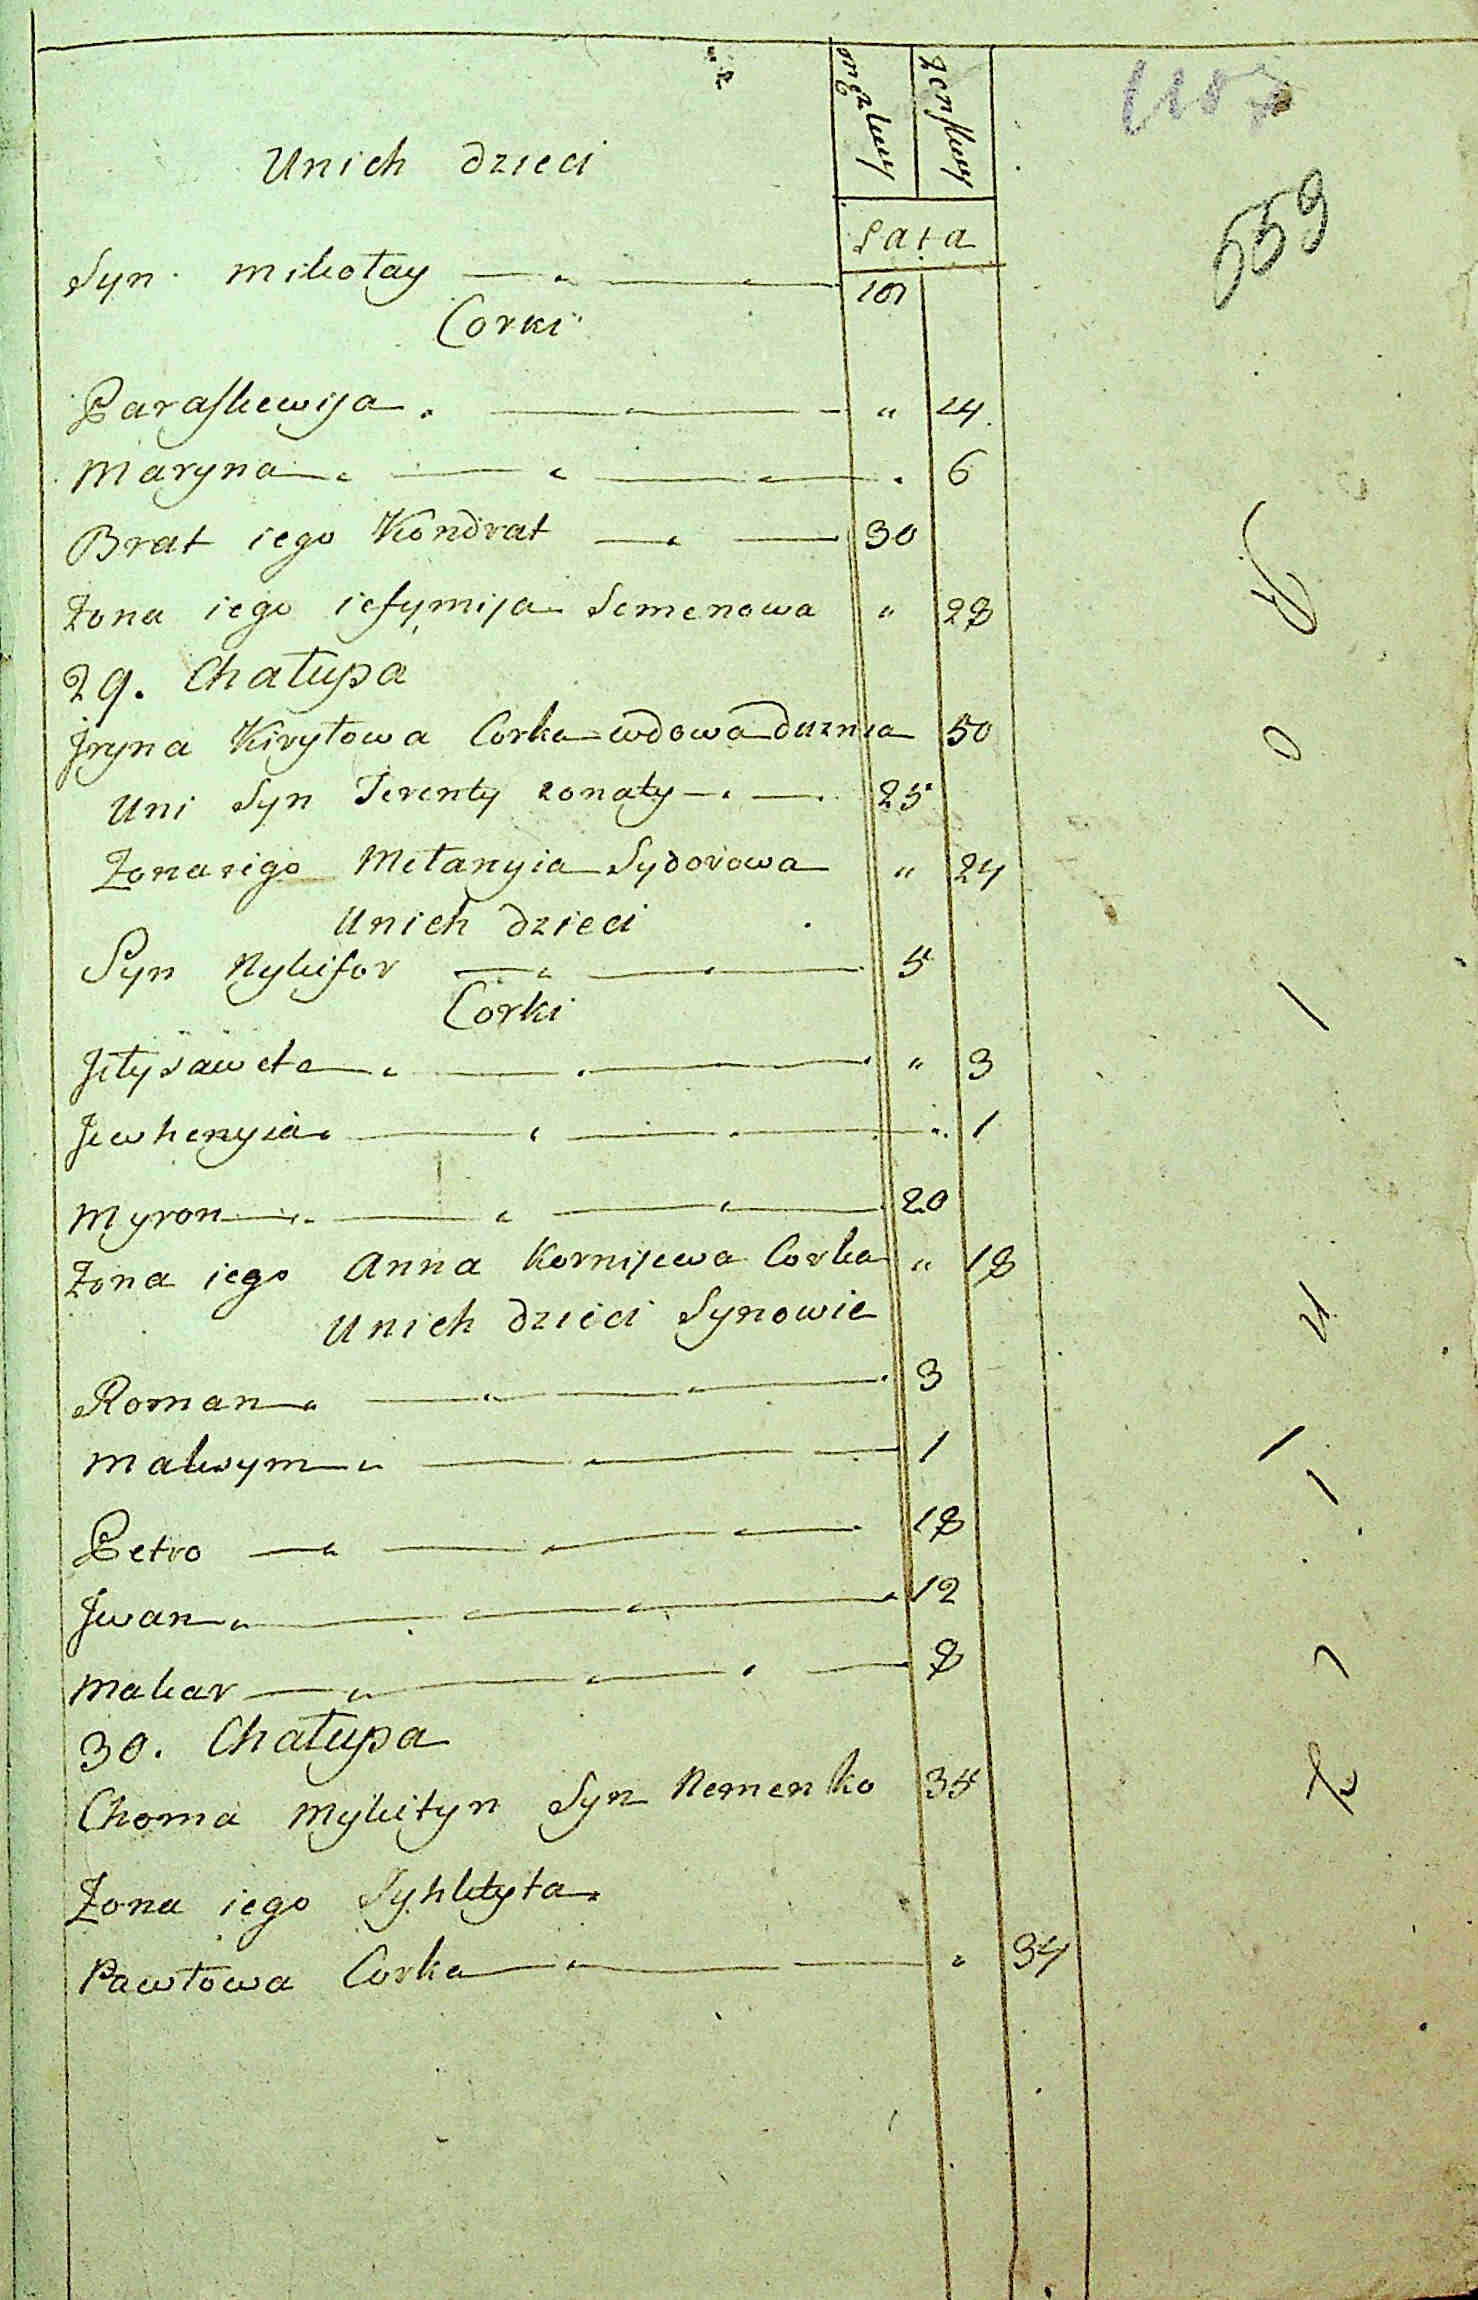 męzkiey
żenskiey
559
Unich dzieci
Lata
Syn Mikołay 10
Corki
Paraskewija " 14
Maryna " 6
Brat iego Kondrat 30
Żona iego iefymija Semenowa " 28
29. Chałupa
Jryna Kiryłowa Corka wdowa 50
Uni Syn Terenty zonaty 25
Żona iego Mełanyia Sydorowa " 24
Unich dzieci
Syn Nykifor 5
Corki
Jełysaweta " 3
Jewhenyia " 1
Myron 20
Żona iego Anna Kornijewa Corka " 18
Unich dzieci Synowie
Roman 3
Maksym 1
Petro 18
Jwan 12
Makar 8
30. Chałupa
Choma Mykityn Syn Nemenko 35
Żona iego
Pawłowa Corka " 34